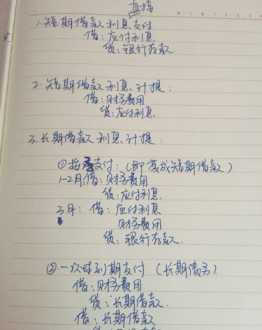 直接
1.短期借款利息支付
借:应付利息
贷:银行存款
2.短期借款利息计提:
借:财务费用
贷:应付利息
3.长期借款利息计提:
①按季支付:(即复效短期借款)
1-2月借:财务费用
贷:应付利息
3月:借:应付利息
财务费用
贷:银行存款
②一次时到期支付(长期债务)
借:财务费用
贷:长期借款
借:长期借款